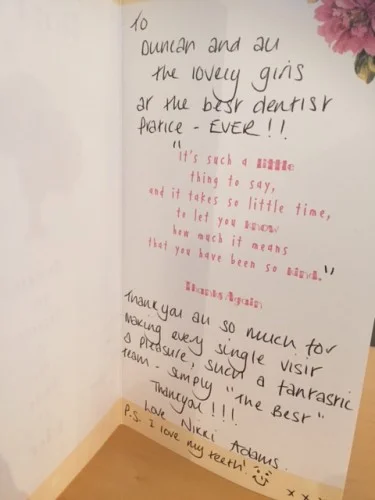 To
Duncan and all
the lovely girls
at the best dentist
Pratice - EVER!!
"It's such a little
thing to say,
and it takes so little time,
to let you know
how much it means
that you have been so kind."
Thanks Again
Thankyou all so much for
making every single visit
a pleasure! Such a fantastic
team - simply "The Best"
Thankyou!!!
Love Nikki Adams.
P.S. I love my teeth!
x x